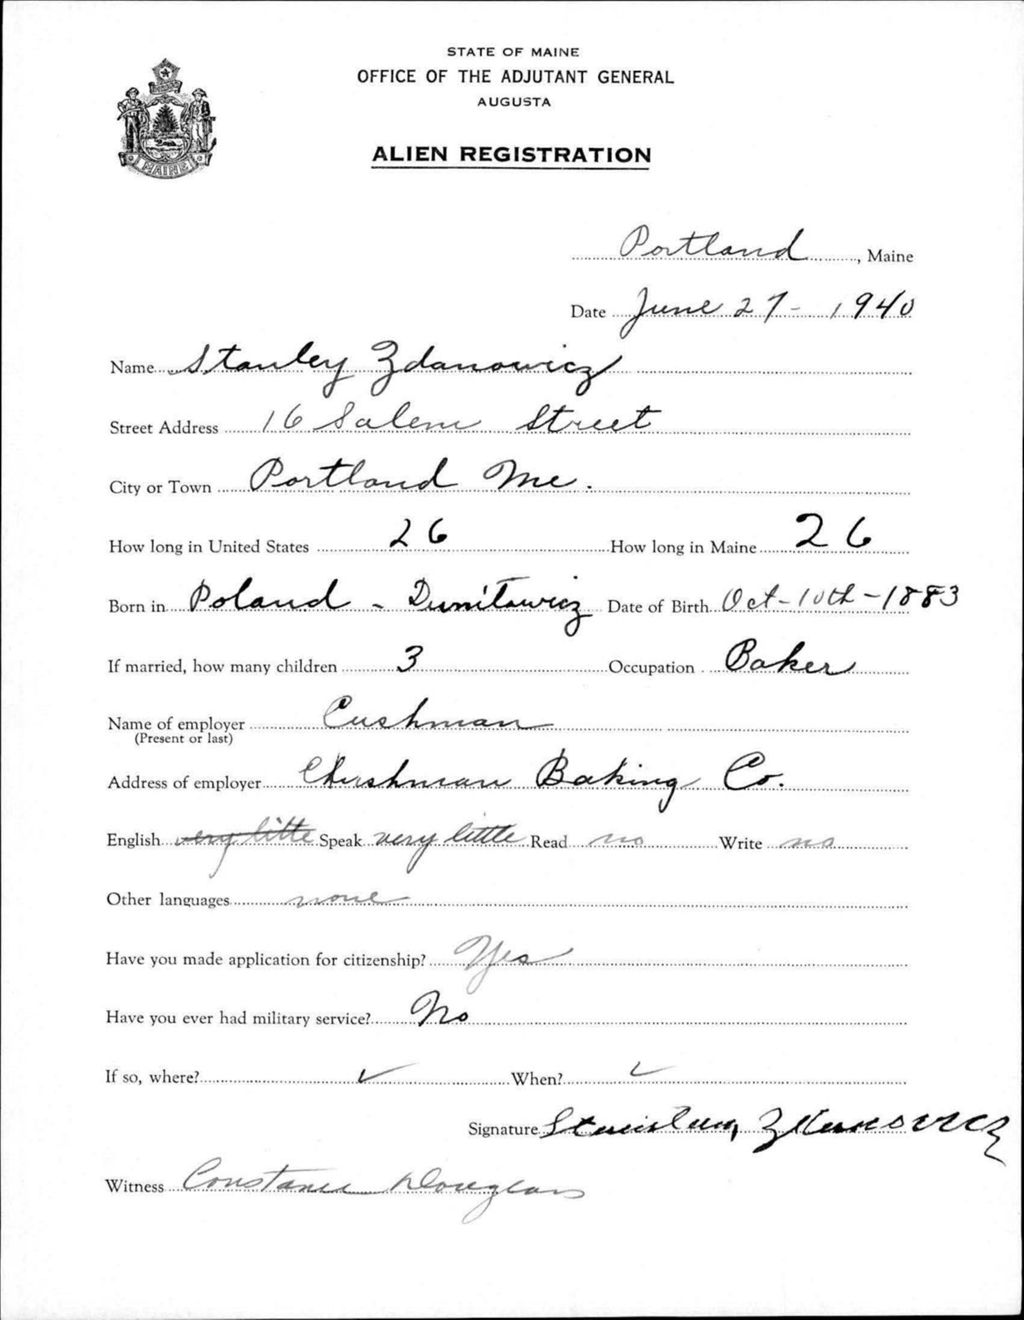 STATE OF MAINE
OFFICE OF THE ADJUTANT GENERAL
AUGUSTA
ALIEN REGISTRATION
MAINE
Portland, Maine
Date June 27 - 1940
Name Stanley Zdanowicz
Street Address 16 Salem Street
City or Town Portland Me.
How long in United States 26 How long in Maine 26
Born in Poland - Date of Birth Oct-10th-1883
If married, how many children 3 Occupation Baker
Name of employer Cushman
(Present or last)
Address of employer Cushman Baking Co.
English very little Speak very little Read no Write no
Other languages none
Have you made application for citizenship? Yes
Have you ever had military service? No
If so, where? ✓ When? ✓
Signature
Witness Constance Douglass